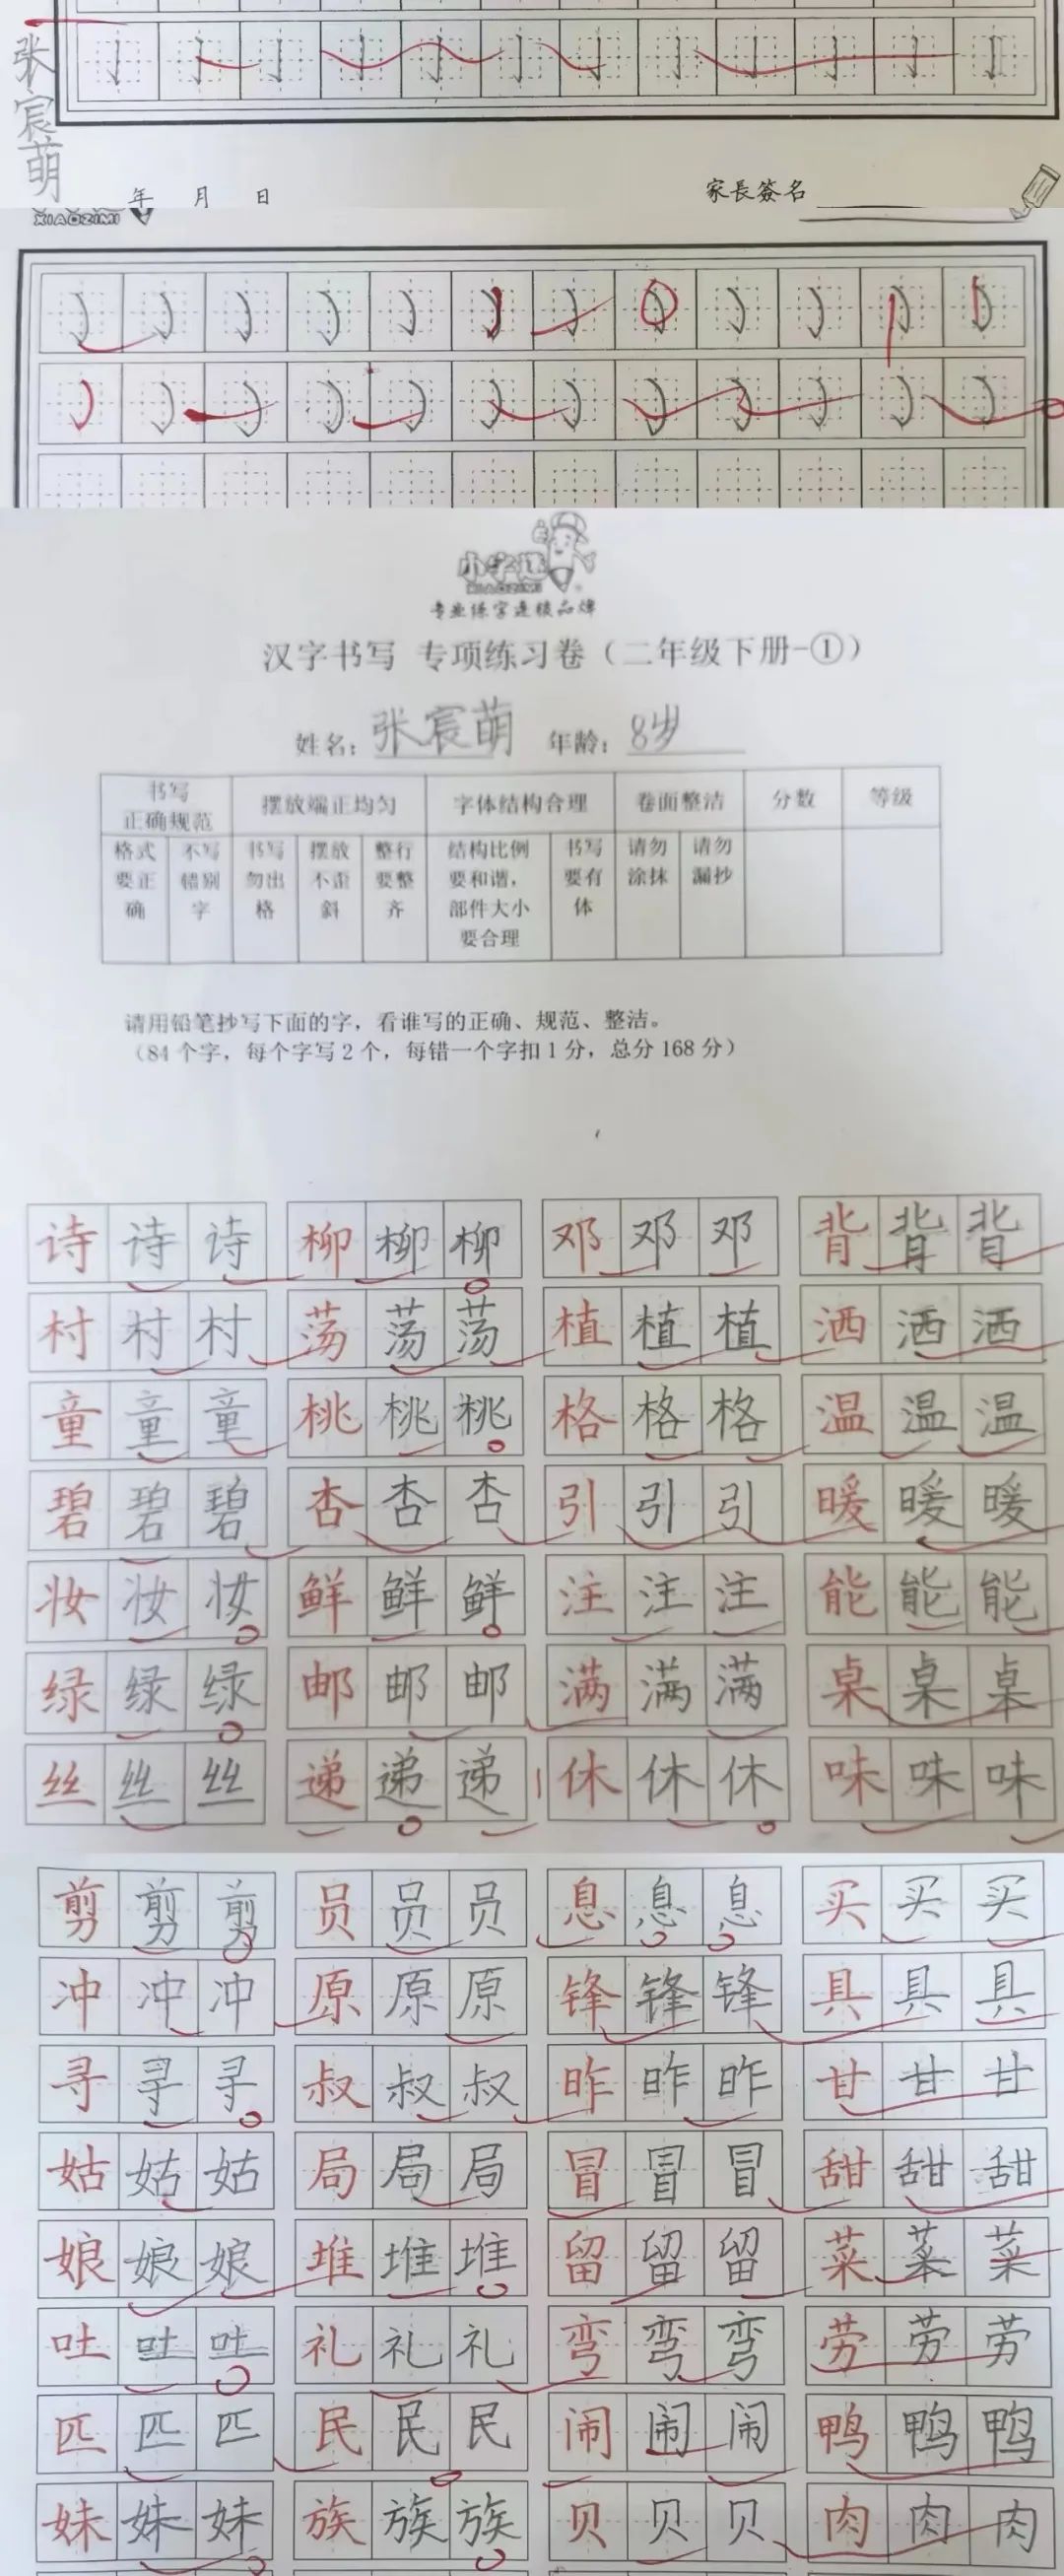 张宸萌
年 月 日 家長簽名
XIAOZIMI
小字迷
XIAOZIMI
专业练字连锁品牌
汉字书写 专项练习卷（二年级下册-①）
姓名：张宸萌 年龄：8岁
书写正确规范 摆放端正均匀 字体结构合理 卷面整洁 分数 等级
格式要正确 不写错别字 书写勿出格 摆放不歪斜 整行要整齐 结构比例要和谐，部件大小要合理 书写要有体 请勿涂抹 请勿漏抄
请用铅笔抄写下面的字，看谁写的正确、规范、整洁。
（84个字，每个字写2个，每错一个字扣1分，总分168分）
诗诗诗 柳柳柳 邓邓邓 背背背
村村村 荡荡荡 植植植 洒洒洒
童童童 桃桃桃 格格格 温温温
碧碧碧 杏杏杏 引引引 暖暖暖
妆妆妆 鲜鲜鲜 注注注 能能能
绿绿绿 邮邮邮 满满满 桌桌桌
丝丝丝 递递递 休休休 味味味
剪剪剪 员员员 息息息 买买买
冲冲冲 原原原 锋锋锋 具具具
寻寻寻 叔叔叔 昨昨昨 甘甘甘
姑姑姑 局局局 冒冒冒 甜甜甜
娘娘娘 堆堆堆 留留留 菜菜菜
吐吐吐 礼礼礼 弯弯弯 劳劳劳
匹匹匹 民民民 闹闹闹 鸭鸭鸭
妹妹妹 族族族 贝贝贝 肉肉肉